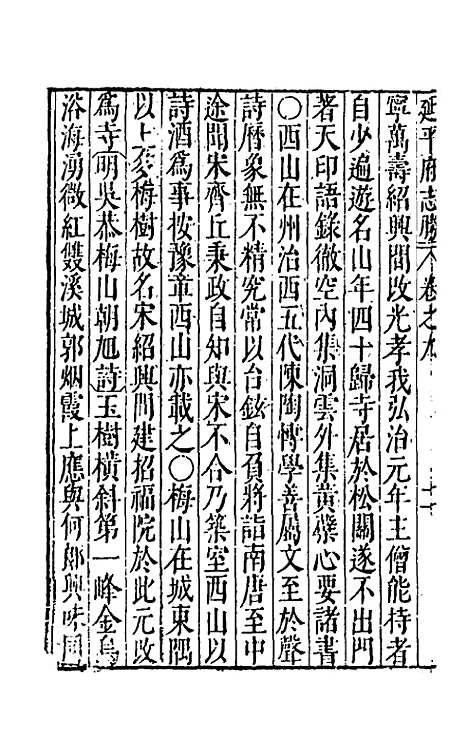 延平府志勝 卷之九 十一
寧萬壽紹興間改光孝我弘治元年主僧能持者
自少遍遊名山年四十歸寺居於松關遂不出門
著天印語錄徹空內集洞雲外集黃檗心要諸書
○西山在州治西五代陳陶博學善屬文至於聲
詩曆象無不精究常以台鉉自負將詣南唐至中
途聞宋齊丘秉政自知與宋不合乃築室西山以
詩酒爲事按豫章西山亦載之○梅山在城東隅
以上多梅樹故名宋紹興間建招福院於此元改
爲寺明吳恭梅山朝旭詩玉樹橫斜第一峰金烏
浴海湧微紅雙溪城郭烟霞上應與何郎興味同